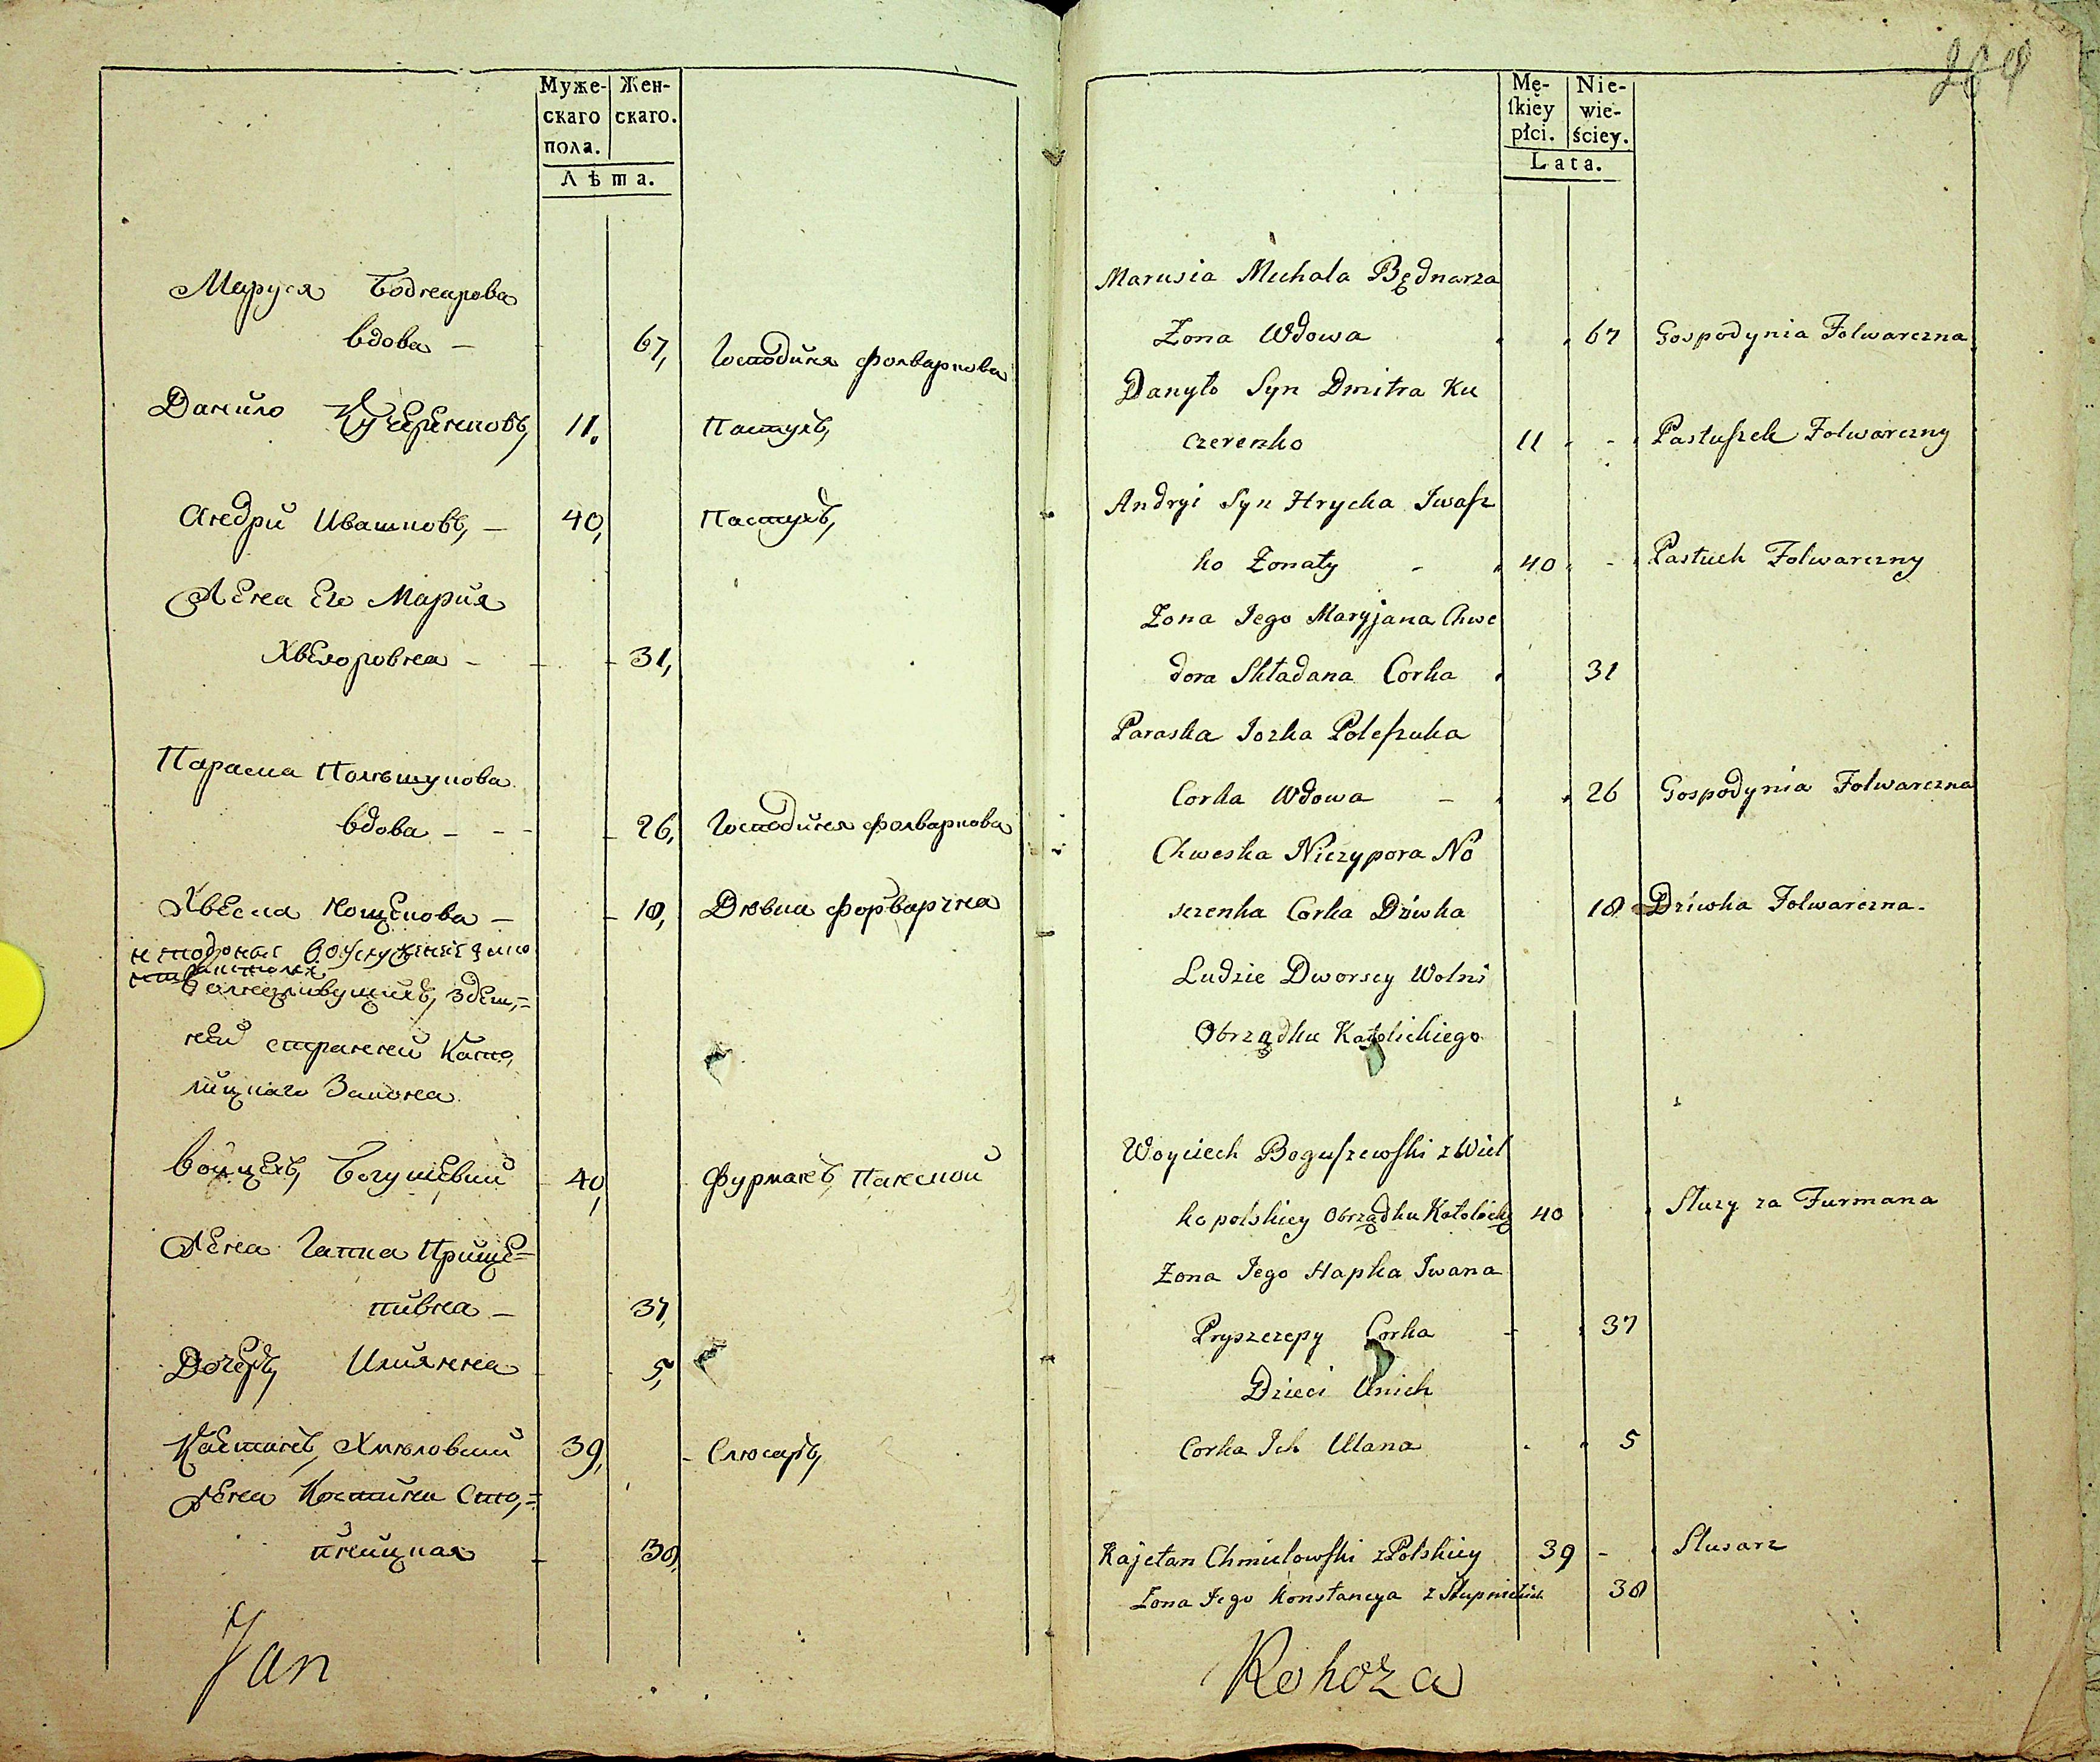 Муже- Жен-
скаго скаго.
пола.
Лѣта.
Маруся Боднарова
вдова – 67, Господиня фолваркова
Данило Кучеренковъ, 11. Пастухъ,
Андрий Ивашковъ, – 40, Пастухъ,
Жена Его Мария
Хведоровна – 31,
Параска Полѣшукова
вдова – – – 26, Господиня фолваркова
Хвеска Нощенкова – 18, Дювка форварчна
ней странней Като,
лицкаго Закона
Войцехъ, Богушевкий 40, Фурманъ, Панской
Жена Гапка Прище=
пивна – 37,
Дочеръ, Илиянна – 5,
Каетанъ, Хмюловский 39, Слюсаръ,
Жена Костанти Сто,=
пницкая – 38,
Jan
269
Mę- Nie-
ſkiey wie-
płci. ściey.
Lata.
Marusia Michala Będnarza
Zona Wdowa 67 Gospodynia Folwarczna
Danyło Syn Dmitra Ku
czerenko 11 - Pastuſzek Folwarczny
Andryi Syn Hrycka Iwaſz
ko Zonaty - 40 - Pastuch Folwarczny
Zona Jego Maryjana Chwe
dora Składana Corka 31
Paraska Jozka Poleſzuka
Corka Wdowa – 26 Gospodynia Folwarczna
Chweska Niczypora No
szczenka Corka Dziwka 18 Dziwka Folwarczna -
Ludzie Dworscy Wolni
Obrządku Katolickiego
Woyciech Boguſzewſki z Wiel
kopolskiey Obrządku Katolickg 40 Służy za Furmana
Zona Jego Hapka Iwana
Pryszczepy Corka - 37
Dzieci Unich
Corka Ich Ulana 5
Kajetan Chmielowſki z Polskiey 39 - Slusarz
Zona Jego Konstancya z Słupnickich 38
Rohoza